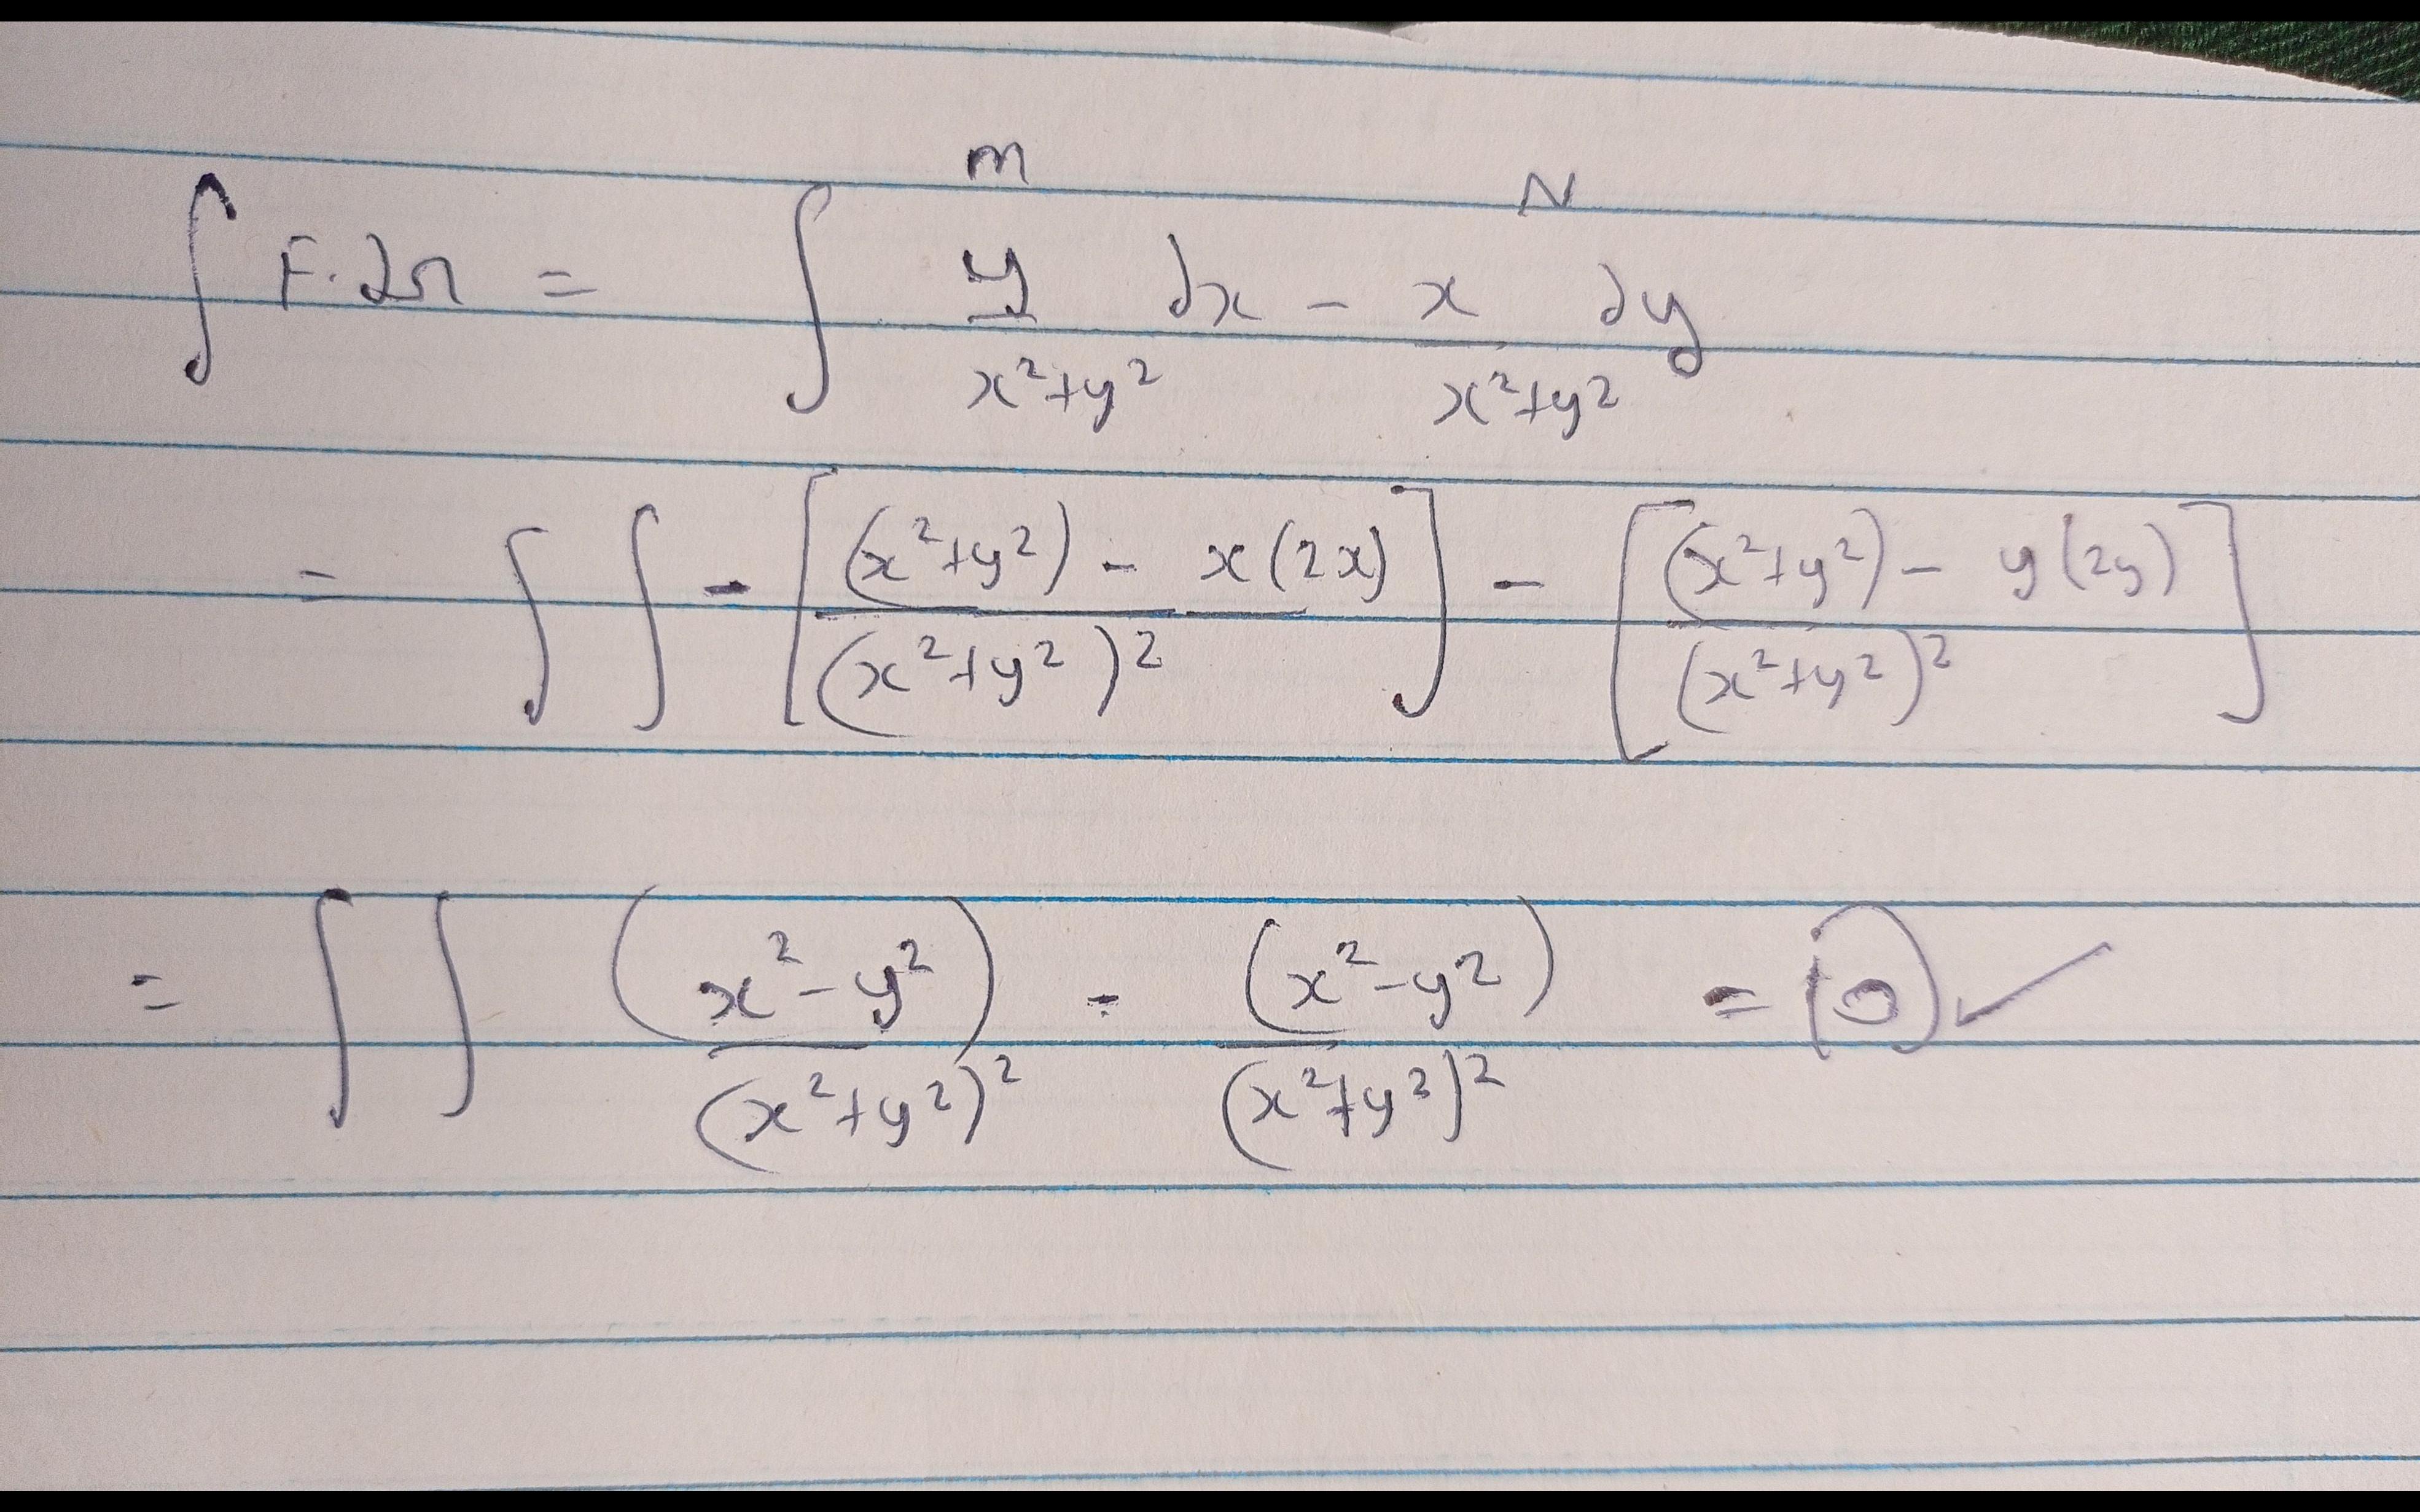 m N
∫ F·dr = ∫ y/(x²+y²) dx − x/(x²+y²) dy
= ∫∫ −[((x²+y²) − x(2x))/(x²+y²)²] − [((x²+y²) − y(2y))/(x²+y²)²]
= ∫∫ (x²−y²)/(x²+y²)² − (x²−y²)/(x²+y²)² = 0 ✓